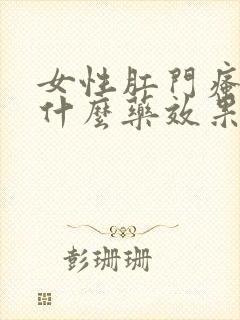 女性肛門瘙
什麼藥效果
彭珊珊